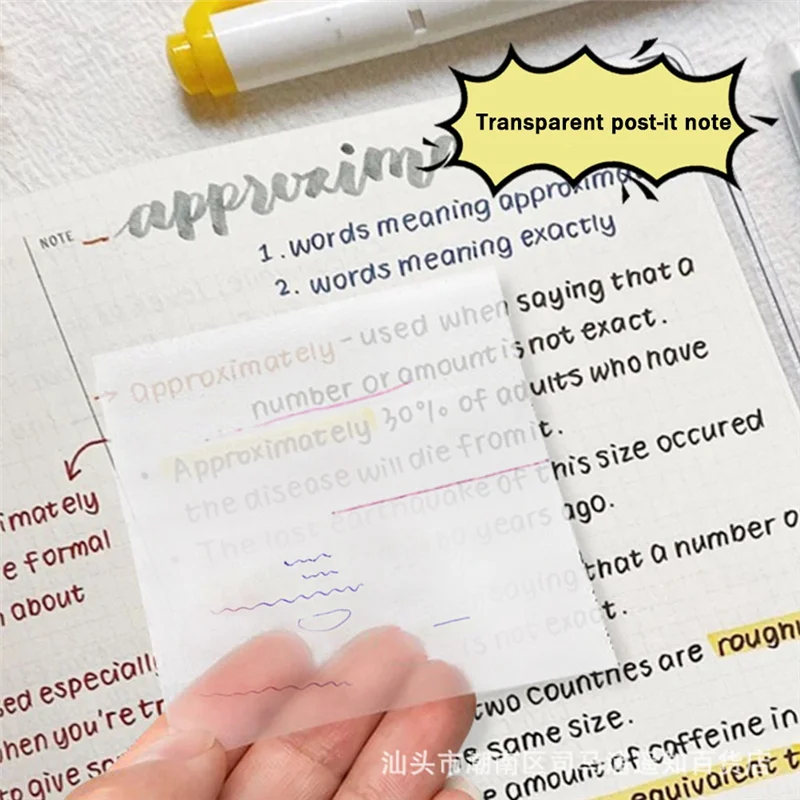 Transparent post-it note
NOTE
approxim
1. words meaning approxima
2. words meaning exactly
Approximately - used when saying that a
number or amount is not exact.
• Approximately 30% of adults who have
the disease will die from it.
• The last earthquake of this size occured
80 years ago.
saying that a number o
is not exact.
two countries are roughl
e same size.
e amount of caffeine in
equivalent t
imately
e formal
about
sed especiall
hen you're tr
to give so